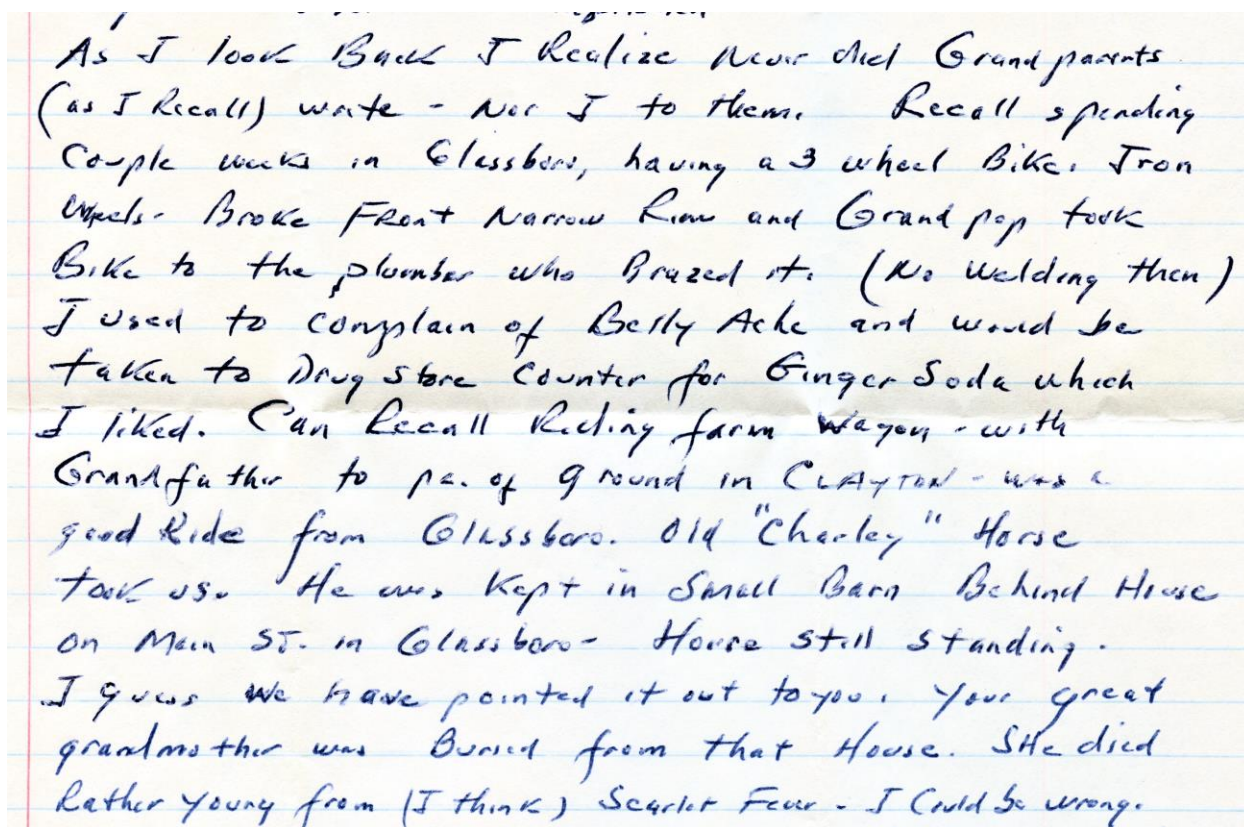 As I look Back I Realize Never did Grandparents
(as I Recall) write - Nor I to them. Recall spending
Couple weeks in Glassboro, having a 3 wheel Bike. Iron
Wheels - Broke Front Narrow Rim and Grandpop took
Bike to the plumber who Brazed it. (No Welding then)
I used to complain of Belly Ache and would be
taken to Drug Store Counter for Ginger Soda which
I liked. Can Recall Riding farm Wagon - with
Grandfather to pc. of ground in CLAYTON - was a
good Ride from Glassboro. Old "Charley" Horse
took us. He was Kept in Small Barn Behind House
on Main ST. in Glassboro - House still standing.
I guess We have pointed it out to you. Your great
grandmother was Buried from that House. SHe died
Rather Young from (I think) Scarlet Fever - I Could be wrong.